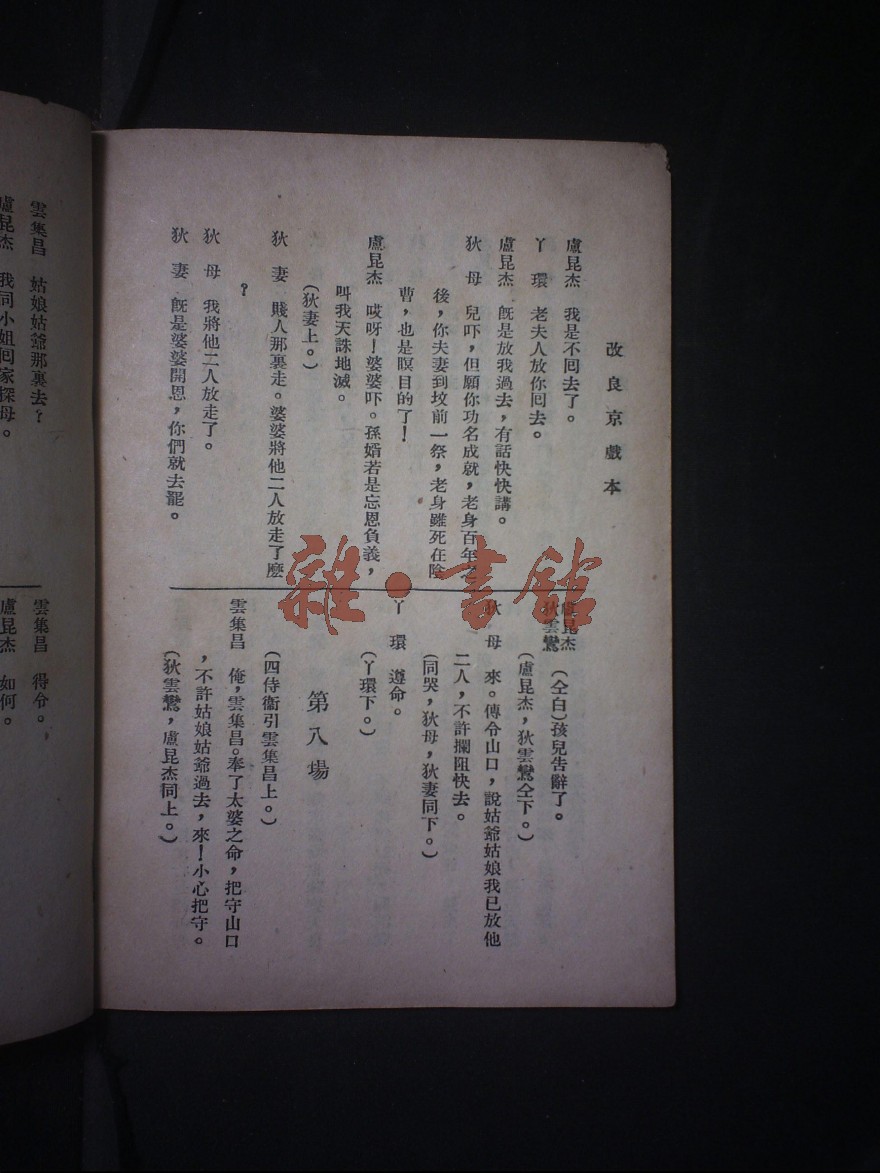 改良京戲本
盧昆杰　我是不回去了。
丫　環　老夫人放你回去。
盧昆杰　旣是放我過去，有話快快講。
狄　母　兒吓，但願你功名成就，老身百年之
後，你夫妻到坟前一祭，老身雖死在陰
曹，也是瞑目的了！
盧昆杰　哎呀！婆婆吓。孫婿若是忘恩負義，
叫我天誅地滅。
（狄妻上。）
狄　妻　賤人那裏走。婆婆將他二人放走了麽
？
狄　母　我將他二人放走了。
狄　妻　旣是婆婆開恩，你們就去罷。
盧昆杰
狄雲鸞　（仝白）孩兒告辭了。
（盧昆杰，狄雲鸞仝下。）
狄　母　來。傳令山口，說姑爺姑娘我已放他
二人，不許攔阻快去。
（同哭，狄母，狄妻同下。）
丫　環　遵命。
（丫環下。）
第八場
（四侍衞引雲集昌上。）
雲集昌　俺，雲集昌。奉了太婆之命，把守山口
，不許姑娘姑爺過去，來！小心把守。
（狄雲鸞，盧昆杰同上。）
雲集昌　姑娘姑爺那裏去？
盧昆杰　我同小姐回家探母。
雲集昌　得令。
盧昆杰　如何。
雜·書館